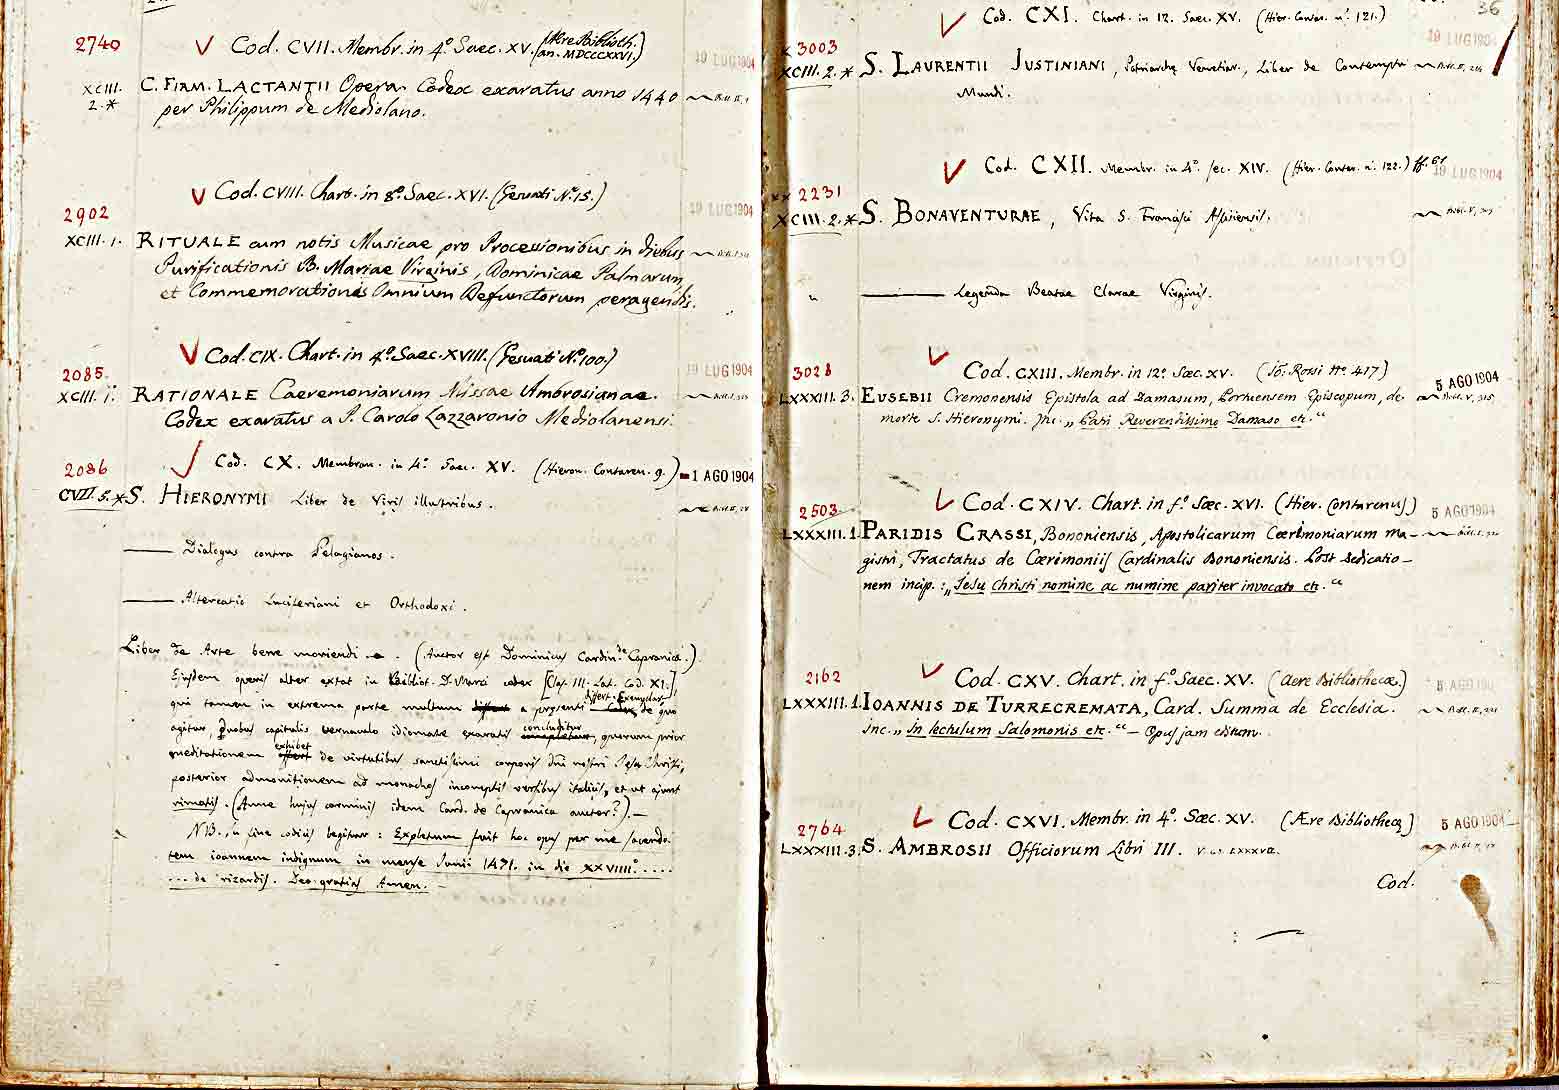 2740
V Cod. CVII. Membr. in 4º. Saec. XV. (Aere Biblioth. an. MDCCCXXVI.)
19 LUG 1904
XCIII. 2.*
C. FIRM. LACTANTII Opera. Codex exaratus anno 1440
per Philippum de Mediolano.
V Cod. CVIII. Chart. in 8º. Saec. XVI. (Gesuati Nº. 15.)
2902
19 LUG 1904
XCIII. 1.
RITUALE cum notis Musicae pro Processionibus in diebus
Purificationis B. Mariae Virginis, Dominicae Palmarum
et Commemorationis Omnium Defunctorum peragendis.
V Cod. CIX. Chart. in 4º. Saec. XVIII. (Gesuati Nº. 100.)
2085.
19 LUG 1904
XCIII. 1.
RATIONALE Caeremoniarum Missae Ambrosianae.
Codex exaratus a P. Carolo Lazzaronio Mediolanensi.
2086
Cod. CX. Membran. in 4º. Saec. XV. (Hieron. Contaren. 9.)
-1 AGO 1904
CVIII. 5.*
S. HIERONYMI Liber de Viris illustribus.
——— Dialogus contra Pelagianos.
——— Altercatio Luciferiani et Orthodoxi.
Liber de Arte bene moriendi. (Auctor est Dominicus Cardin. de Capranica.)
Ejusdem operis alter extat in Bibliot. D. Marci codex [Clas. III. Lat. Cod. XI.]
qui tamen in extrema parte multum differt a praesenti Exemplari de quo
agitur. Duobus capitulis vernaculo idiomate exaratis concluditur, quorum prior
meditationem exhibet de virtutibus sanctissimi corporis Dni nostri Jesu Christi,
posterior admonitionem ad monachos incomptis versibus italicis, et ut ajunt
rimatis. (Anne hujus carminis idem Card. de Capranica auctor?).—
NB. in fine codicis legitur: Expletum fuit hoc opus per me sacerdo-
tem ioannem indignum in mense Junii 1471. in die XXVIIIIº.....
... de vizardis. Deo gratias Amen. —
36
Cod. CXI. Chart. in 12. Saec. XV. (Hier. Contar. nº. 121.)
3003
19 LUG 1904
XCIII. 2.*
S. LAURENTII JUSTINIANI, Patriarchae Venetiar., Liber de Contemptu
Mundi.
Cod. CXII. Membr. in 4º. sec. XIV. (Hier. Contar. nº. 122.) ff. 61
2231
19 LUG 1904
XCIII. 2.*
S. BONAVENTURAE, Vita S. Francisci Assisiensis.
——— Legenda Beatae Clarae Virginis.
3028
Cod. CXIII. Membr. in 12º. Sæc. XV. (Jô: Rossi Nº. 417)
5 AGO 1904
LXXXIII. 3.
EUSEBII Cremonensis Epistola ad Damasum, Portuensem Episcopum, de
morte S. Hieronymi. Inc. „ Patri Reverendissimo Damaso etc. “
2503
Cod. CXIV. Chart. in fº. Sæc. XVI. (Hier. Contarenus)
5 AGO 1904
LXXXIII. 1.
PARIDIS CRASSI, Bononiensis, Apostolicarum Cœrimoniarum ma-
gistri, Tractatus de Cœrimoniis Cardinalis Bononiensis. Post dedicatio-
nem incip.: „ Jesu Christi nomine ac numine pariter invocato etc. “
2162
Cod. CXV. Chart. in fº. Saec. XV. (Aere Bibliothecæ)
5 AGO 190
LXXXIII. 1.
IOANNIS DE TURRECREMATA, Card. Summa de Ecclesia.
inc. „ In lectulum Salomonis etc. “ — Opus jam editum.
2764
Cod. CXVI. Membr. in 4º. Sæc. XV. (Ære Bibliothecæ)
5 AGO 1904
LXXXIII. 3.
S. AMBROSII Officiorum Libri III.
Cod.